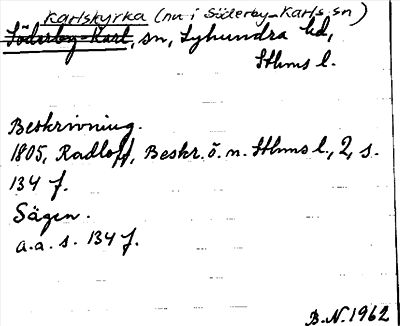 Karlskyrka (nu i Söderby-Karls sn)
Söderby-Karl, sn, Lyhundra hd,
Sthms l.
Beskrivning.
1805, Radloff, Beskr. ö. n. Sthms l., 2, s.
134 f.
Sägen.
a.a. s. 134 f.
B.N. 1962